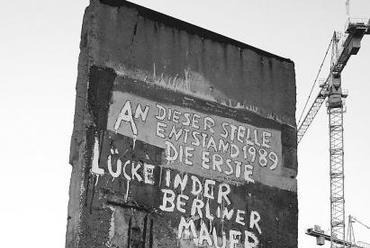 AN DIESER STELLE
ENTSTAND 1989
DIE ERSTE
LÜCKE IN DER
BERLINER
MAUER